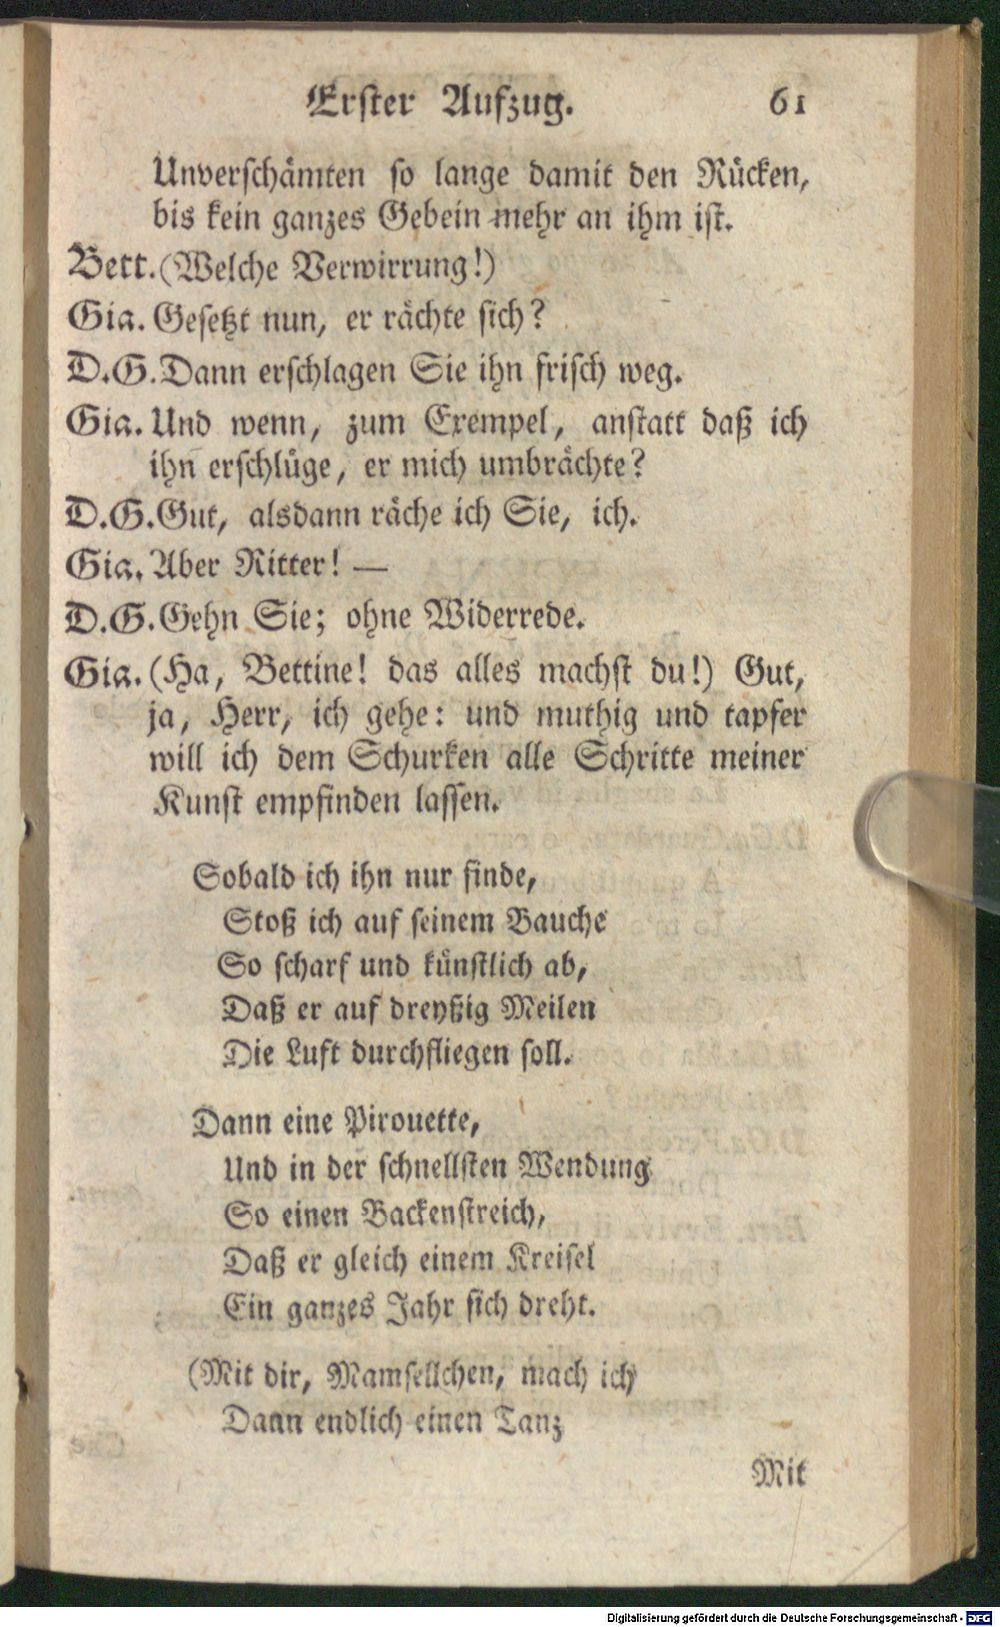 Erster Aufzug. 61
Unverschämten so lange damit den Rücken,
bis kein ganzes Gebein mehr an ihm ist.
Bett. (Welche Verwirrung!)
Gia. Gesetzt nun, er rächte sich?
D.G. Dann erschlagen Sie ihn frisch weg.
Gia. Und wenn, zum Exempel, anstatt daß ich
ihn erschlüge, er mich umbrächte?
D.G. Gut, alsdann räche ich Sie, ich.
Gia. Aber Ritter! —
D.G. Gehn Sie; ohne Widerrede.
Gia. (Ha, Bettine! das alles machst du!) Gut,
ja, Herr, ich gehe: und muthig und tapfer
will ich dem Schurken alle Schritte meiner
Kunst empfinden lassen.
Sobald ich ihn nur finde,
Stoß ich auf seinem Bauche
So scharf und künstlich ab,
Daß er auf dreyßig Meilen
Die Luft durchfliegen soll.
Dann eine Pirouette,
Und in der schnellsten Wendung
So einen Backenstreich,
Daß er gleich einem Kreisel
Ein ganzes Jahr sich dreht.
(Mit dir, Mamsellchen, mach ich
Dann endlich einen Tanz
Mit
Digitalisierung gefördert durch die Deutsche Forschungsgemeinschaft - DFG